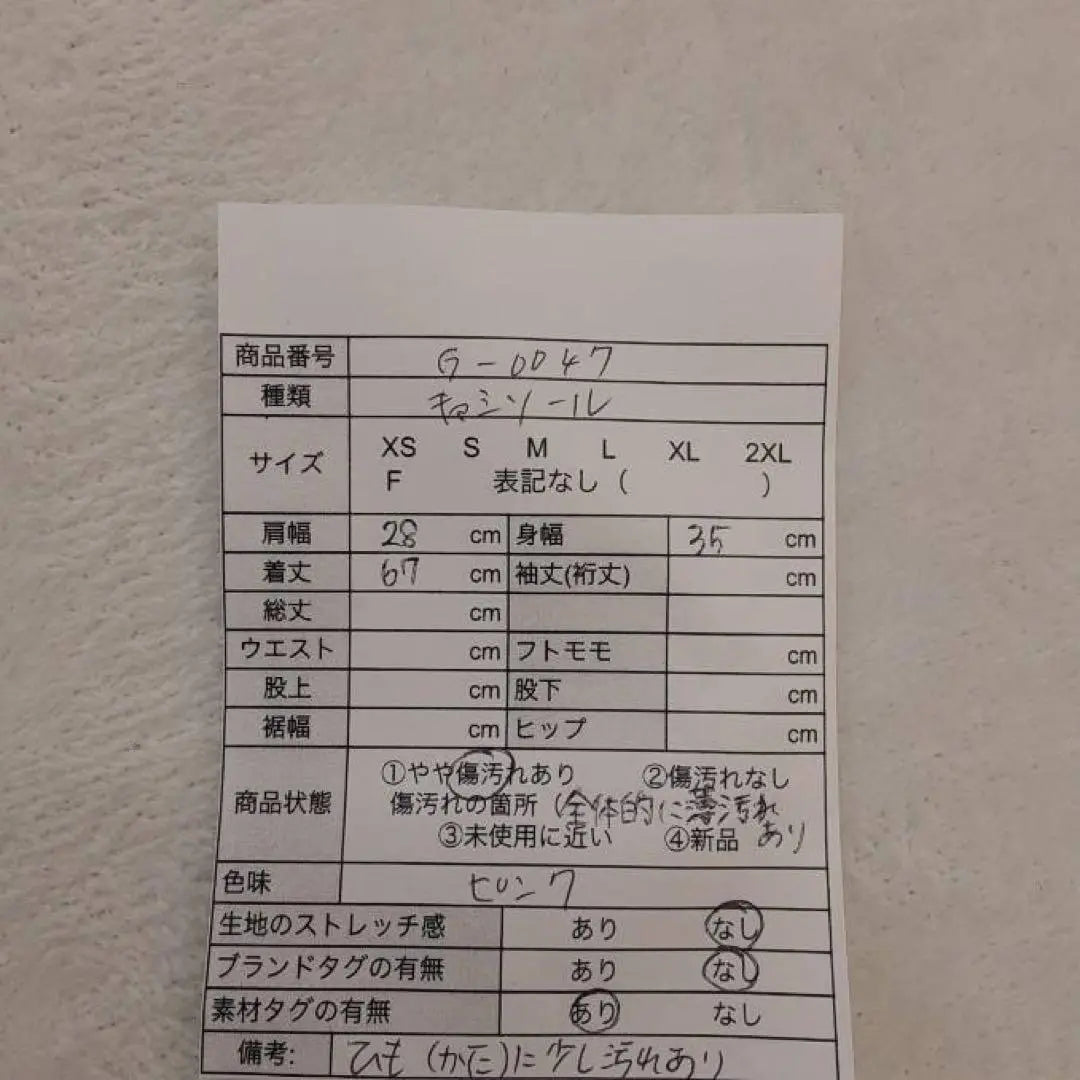 商品番号 G-0047
種類 キャミソール
サイズ XS S M L XL 2XL
F 表記なし ( )
肩幅 28 cm 身幅 35 cm
着丈 67 cm 袖丈(裄丈) cm
総丈 cm
ウエスト cm フトモモ cm
股上 cm 股下 cm
裾幅 cm ヒップ cm
商品状態 ①やや傷汚れあり ②傷汚れなし
傷汚れの箇所 (全体的に薄汚れ
③未使用に近い ④新品 あり
色味 ピンク
生地のストレッチ感 あり なし
ブランドタグの有無 あり なし
素材タグの有無 あり なし
備考: ひも(かた)に少し汚れあり